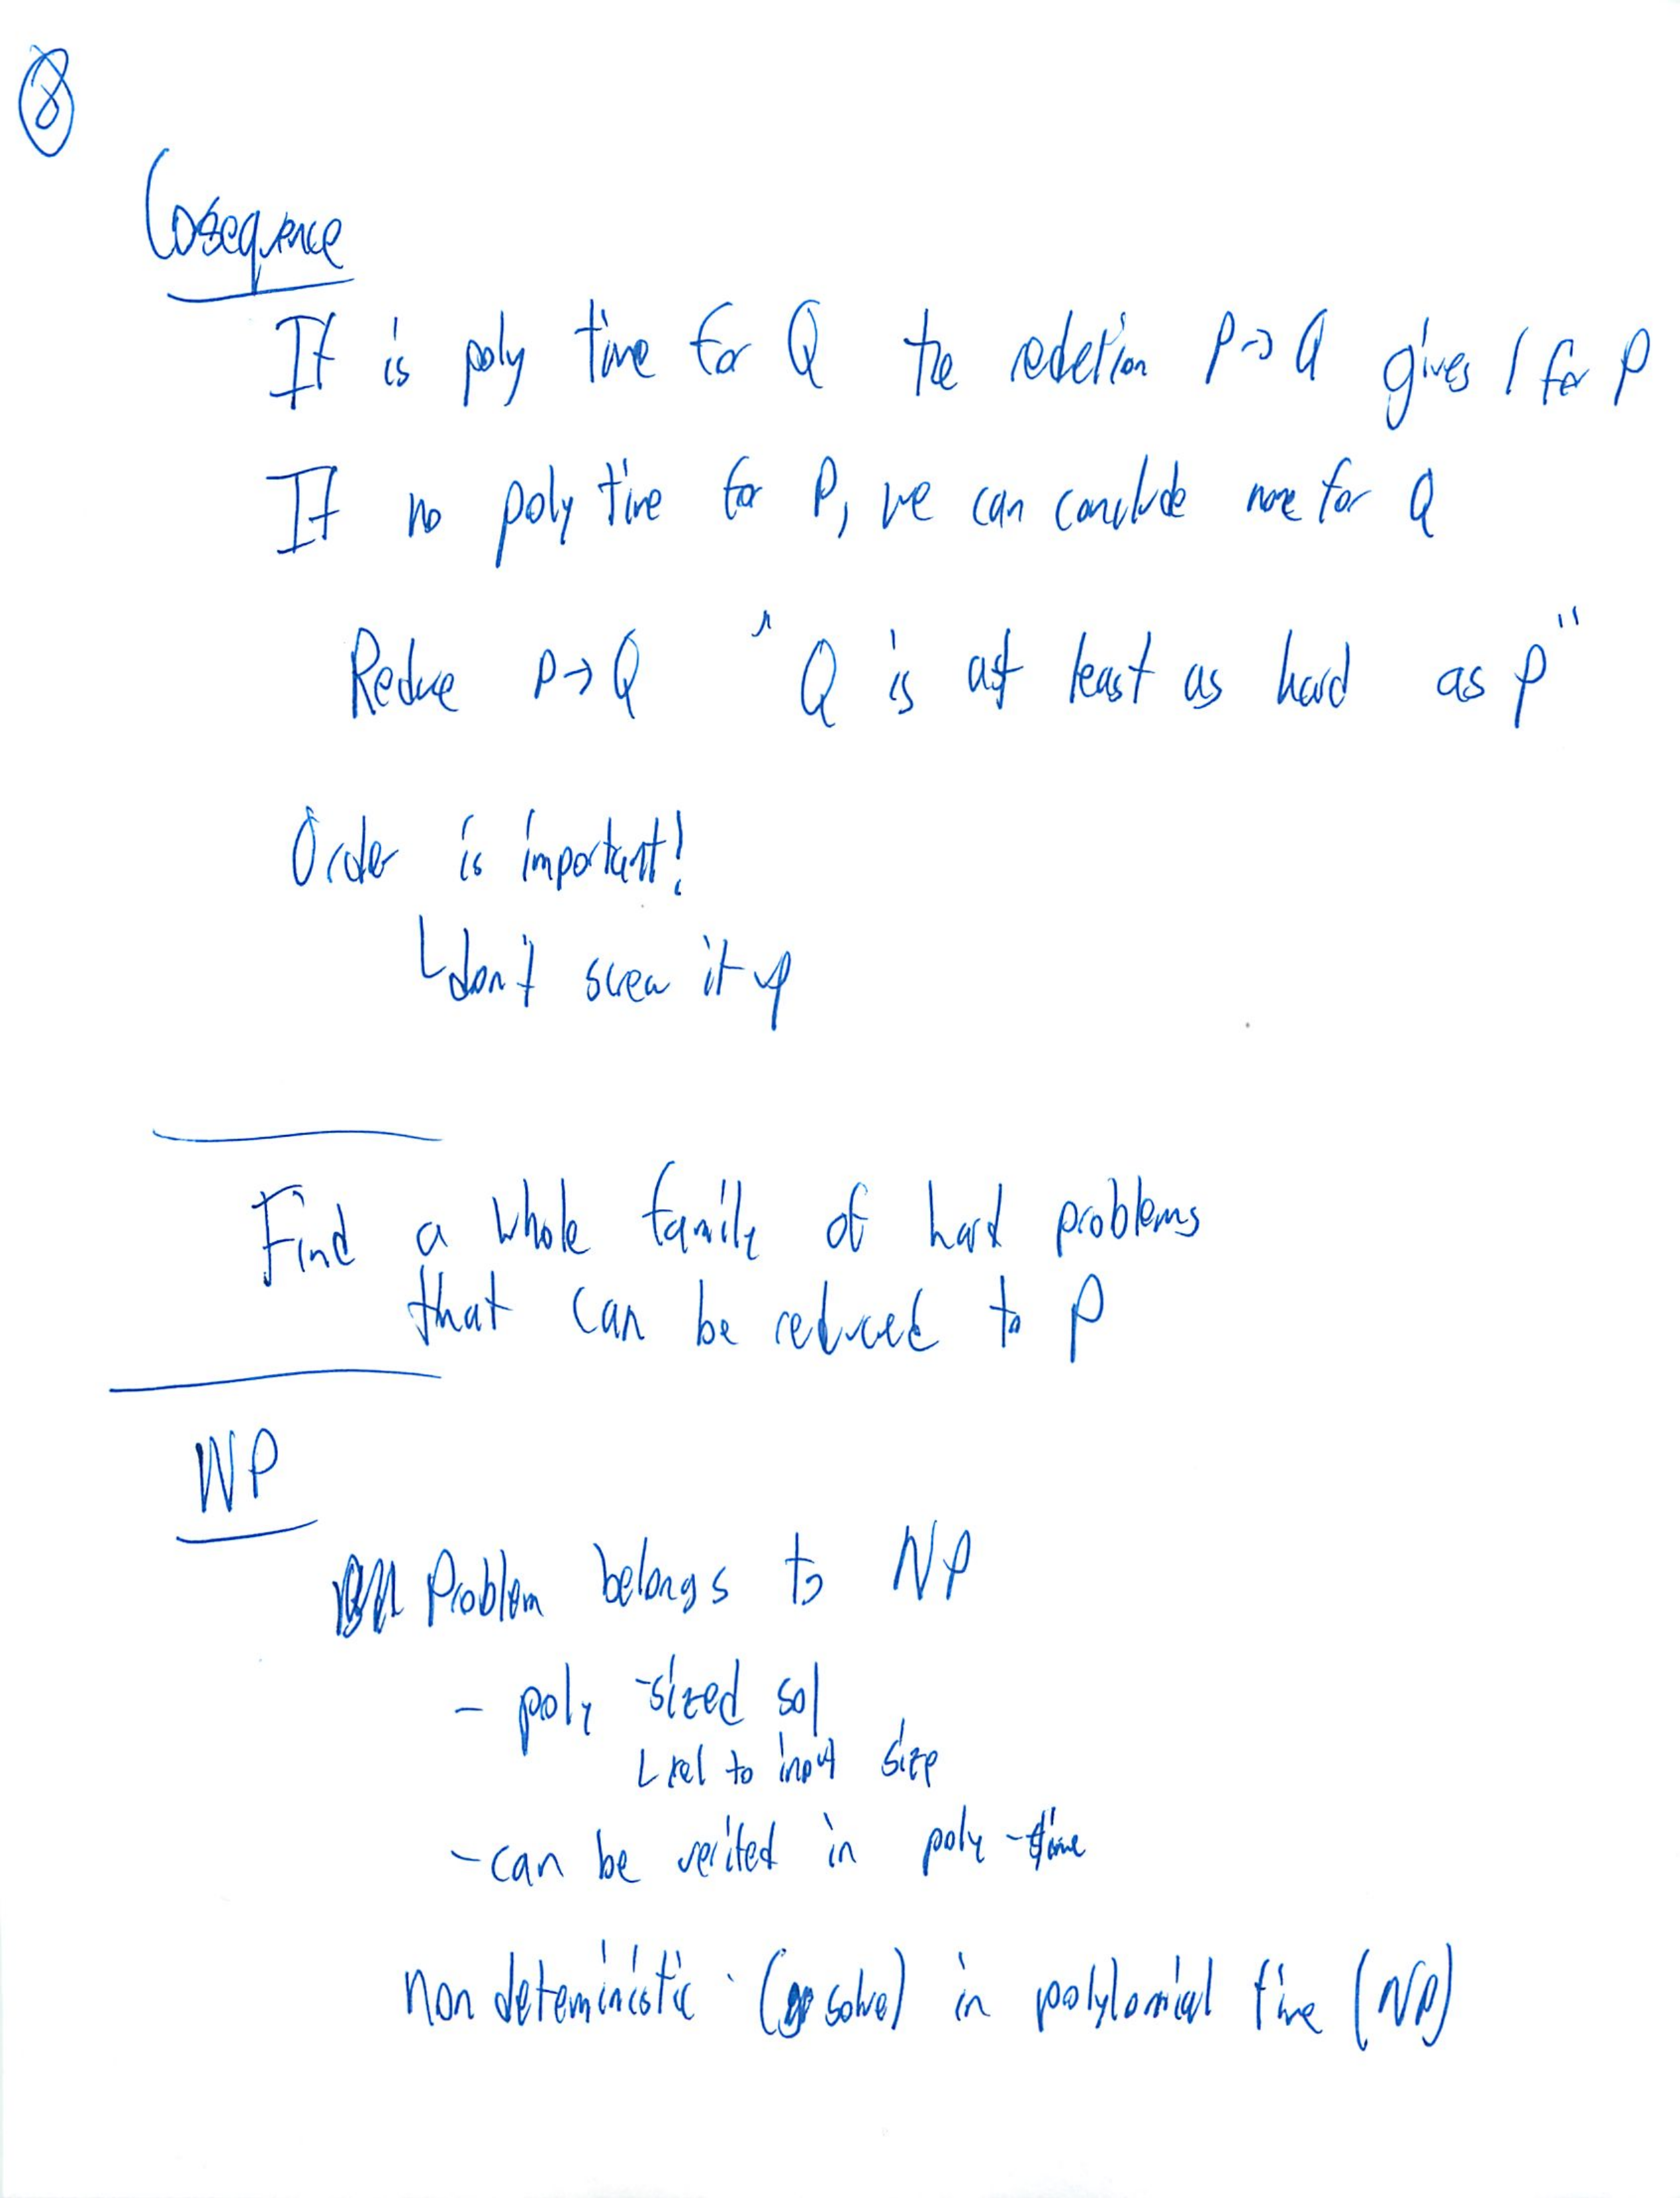 8
Cosequence
If is poly time for Q the redction P→Q gives 1 for P
If no poly time for P, we can conclude none for Q
Reduce P→Q "Q is at least as hard as P"
Order is important!
don't screw it up
Find a whole family of hard problems
that can be reduced to P
NP
Problem belongs to NP
- poly-sized sol
rel to input size
- can be verifed in poly-time
Non deterministic (solve) in polylomial time (NP)